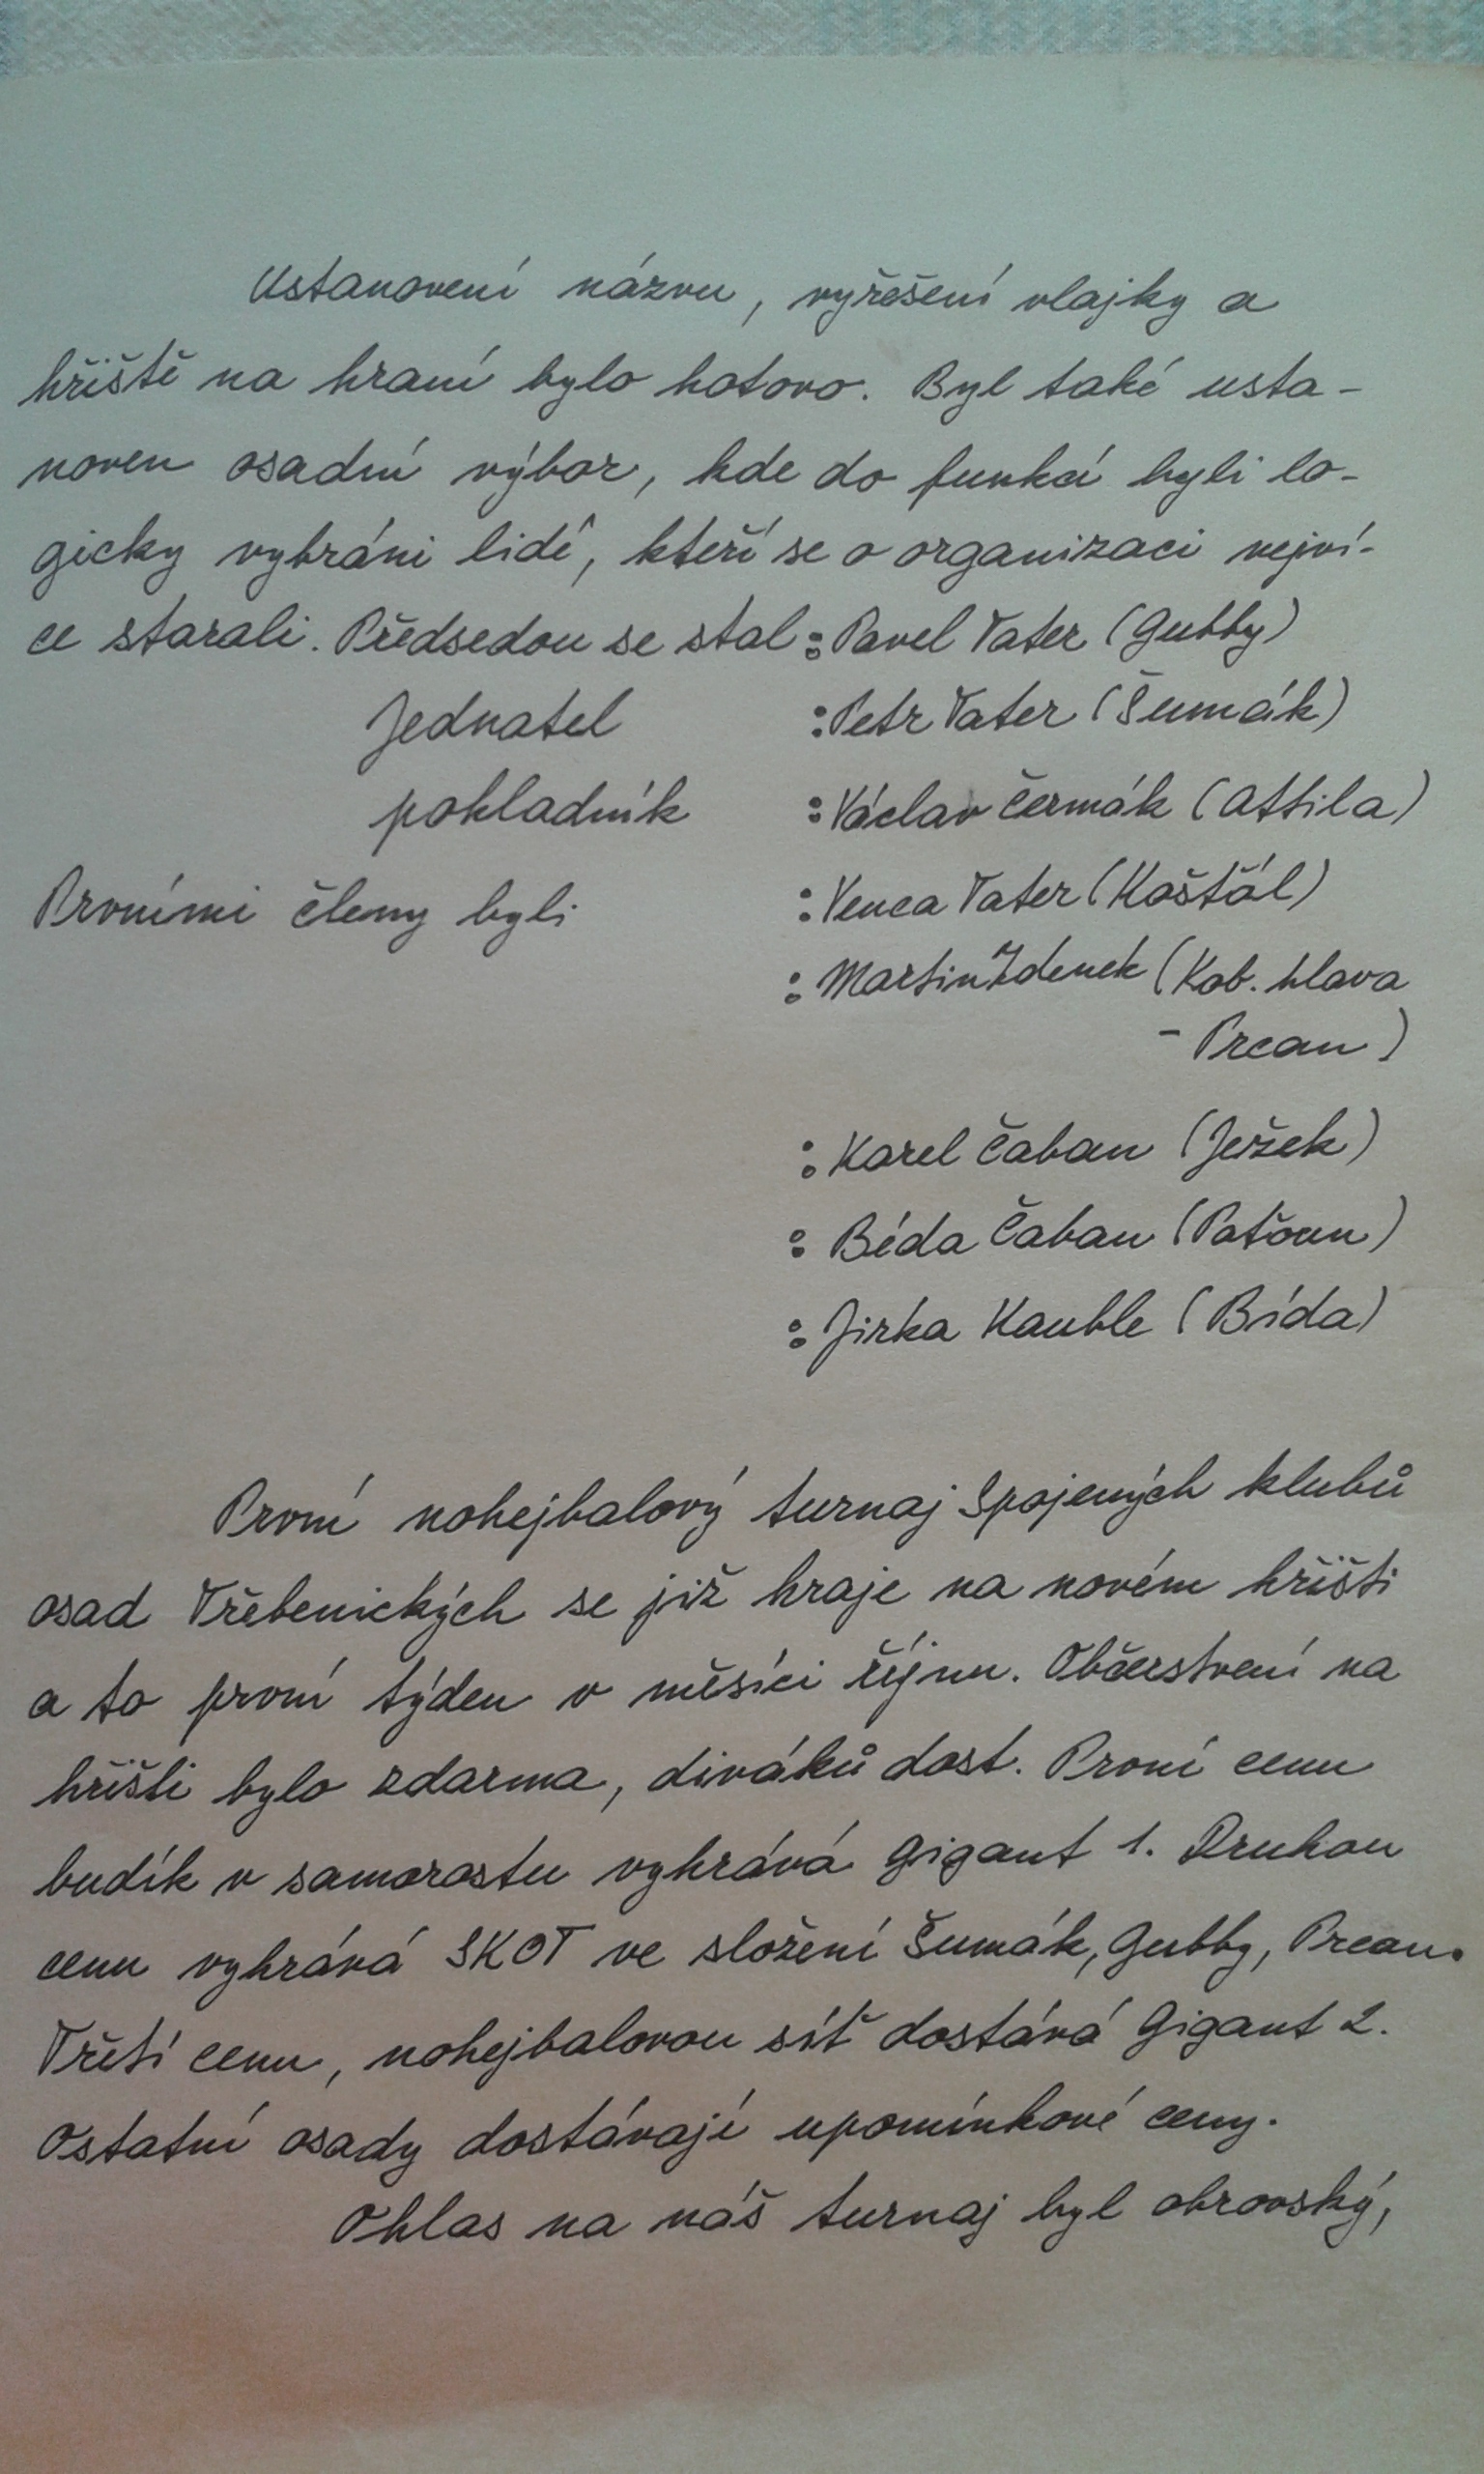 Ustanovení názvu, vyřešení vlajky a
hřiště na hraní bylo hotovo. Byl také usta-
noven osadní výbor, kde do funkcí byli lo-
gicky vybráni lidé, kteří se o organizaci nejví-
ce starali. Předsedou se stal : Pavel Tater (Gubby)
Jednatel : Petr Tater (Šumák)
pokladník : Václav Čermák (Attila)
Prvními členy byli : Venca Tater (Košťál)
: Martin Zdenek (Kob. hlava
- Prcan)
: Karel Čaban (Ježek)
: Béda Čaban (Paťoun)
: Jirka Kauble (Bída)
První nohejbalový turnaj Spojených klubů
osad Třebenických se již hraje na novém hřišti
a to první týden v měsíci říjnu. Občerstvení na
hřišti bylo zdarma, diváků dost. První cenu
budík v samorostu vyhrává Gigant 1. Druhou
cenu vyhrává SKOT ve složení Šumák, Gubby, Prcan.
Třetí cenu, nohejbalovou síť dostává Gigant 2.
Ostatní osady dostávají upomínkové ceny.
Ohlas na náš turnaj byl obrovský,